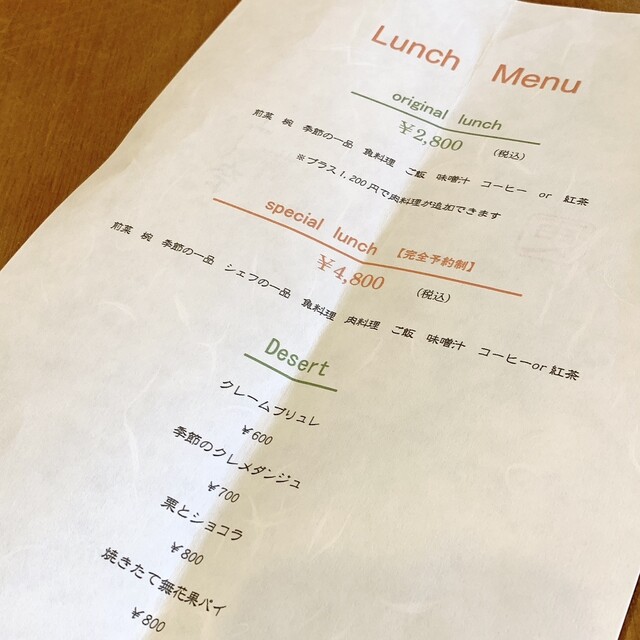 Lunch Menu
original lunch
¥2,800 (税込)
前菜 椀 季節の一品 魚料理 ご飯 味噌汁 コーヒー or 紅茶
※プラス1,200円で肉料理が追加できます
special lunch 【完全予約制】
¥4,800 (税込)
前菜 椀 季節の一品 シェフの一品 魚料理 肉料理 ご飯 味噌汁 コーヒーor紅茶
Desert
クレームブリュレ
¥600
季節のクレメダンジュ
¥700
栗とショコラ
¥800
焼きたて無花果パイ
¥800